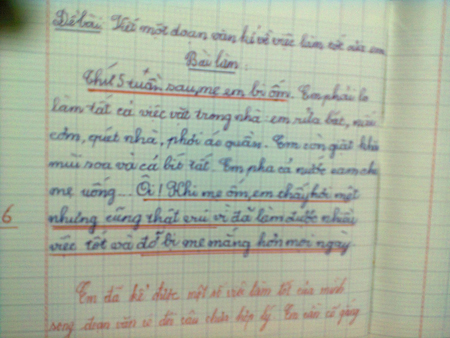 Đề bài: Viết một đoạn văn kể về việc làm tốt của em
Bài làm.
Thứ 5 tuần sau, mẹ em bị ốm. Em phải lo
làm tất cả việc vặt trong nhà em rửa bát, nấu
cơm, quét nhà, phơi áo quần. Em còn giặt khă
mùi soa và cả bít tất. Em pha cả nước cam cho
mẹ uống.... Ôi! Khi mẹ ốm, em thấy hơi mệt
nhưng cũng thật vui vì đã làm được nhiều
việc tốt và đỡ bị mẹ mắng hơn mọi ngày.
6
Em đã kể được một số việc làm tốt của mình
song đoạn văn có đôi câu chưa hợp lý. Em cần cố gắng